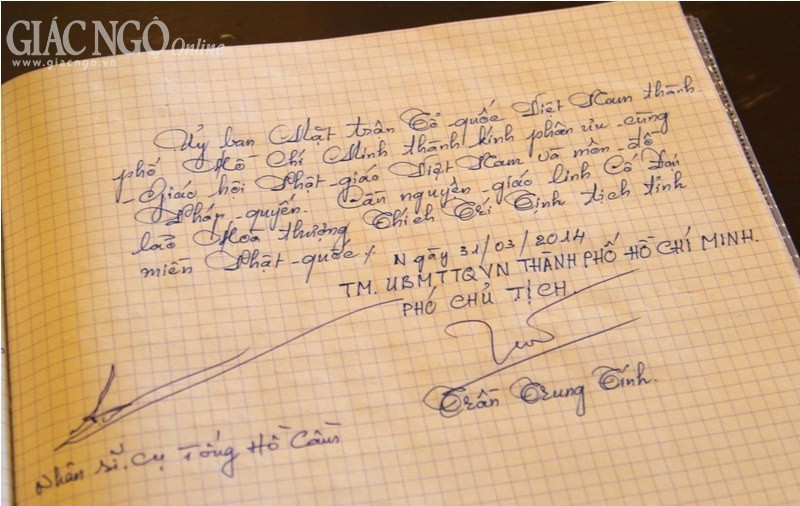 GIÁC NGỘ Online
www.giacngo.vn
Ủy ban Mặt trân Tổ-quốc Việt Nam thành
phố Hồ Chí Minh thành kính phân ưu cùng
Giáo hội Phật-giáo Việt Nam và môn-đồ
Pháp-quyến. Cần nguyện-giáo linh Cố Đại
laõ Hòa thượng Thích Trí Tịnh tịch tỉnh
miền Phật-quốc /. Ngày 31/03/2014
TM. UBMTTQVN THÀNH PHỐ HỒ CHÍ MINH.
PHÓ CHỦ TỊCH.
Trần Trung Tính.
Nhân sĩ. Cụ Tống Hồ Cầm